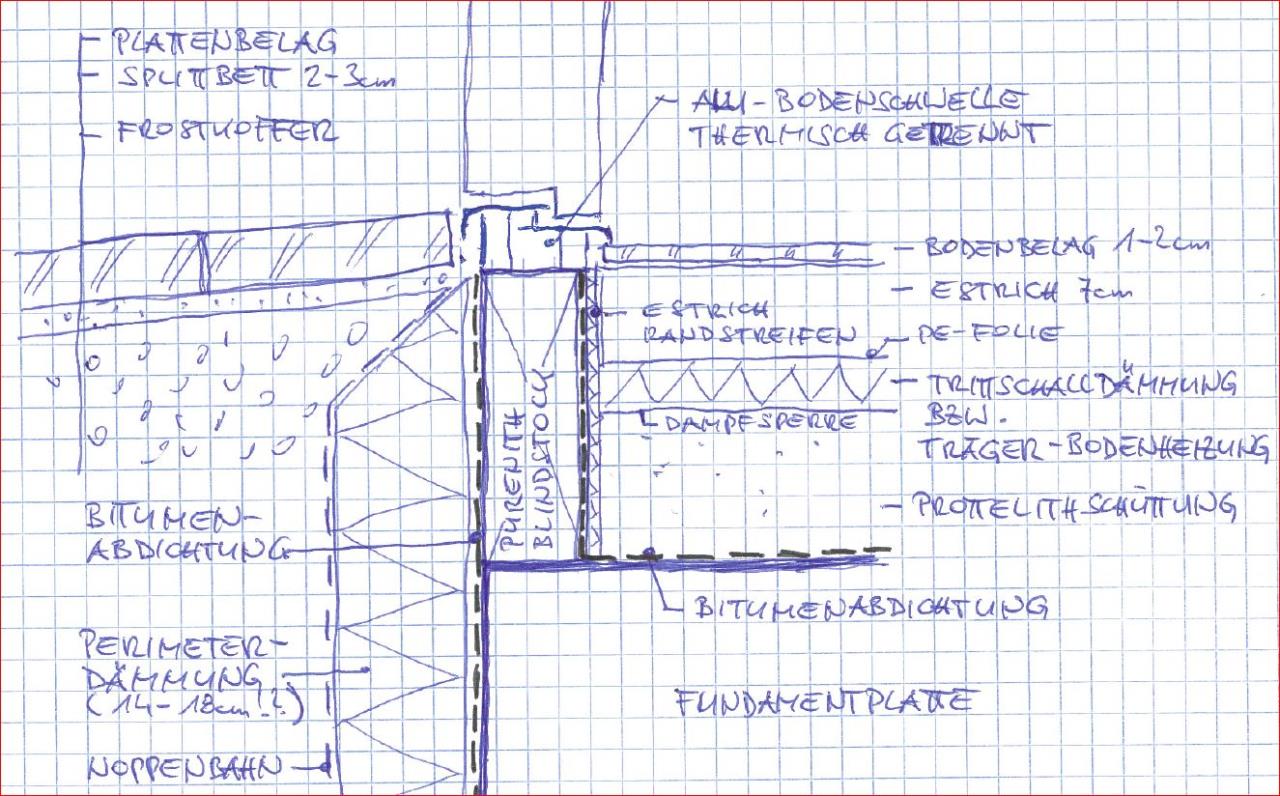 PLATTENBELAG
SPLITTBETT 2-3cm
FROSTKOFFER
ALU-BODENSCHWELLE
THERMISCH GETRENNT
BODENBELAG 1-2cm
ESTRICH 7cm
ESTRICH
RANDSTREIFEN
PE-FOLIE
TRITTSCHALLDÄMMUNG
BZW.
TRÄGER-BODENHEIZUNG
DAMPFSPERRE
PURENITH
BLINDSTOCK
PROTTELITHSCHÜTTUNG
BITUMEN-
ABDICHTUNG
BITUMENABDICHTUNG
PERIMETER-
DÄMMUNG
(14-18cm!?)
FUNDAMENTPLATTE
NOPPENBAHN